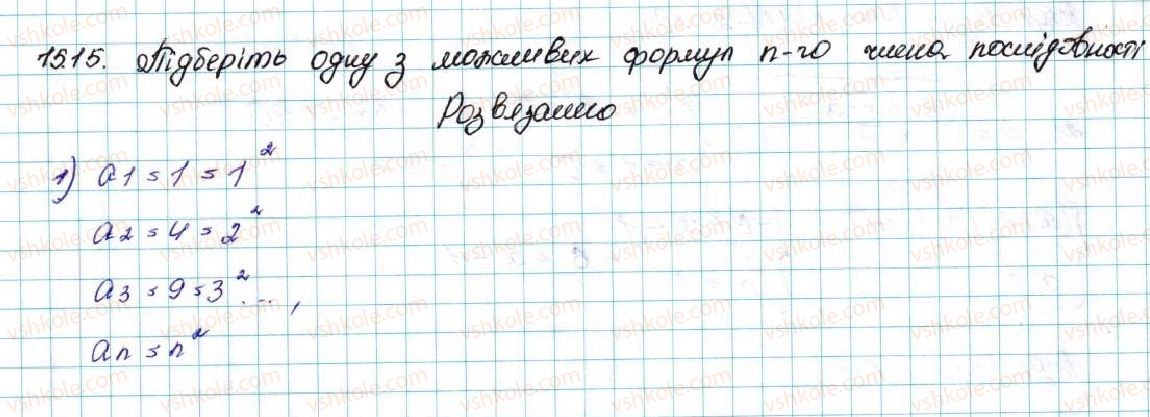 15.15. Підберіть одну з можливих формул n-го члена послідовності
Розвязання
1) a1 = 1 = 1²
a2 = 4 = 2²
a3 = 9 = 3² ...,
an = n²